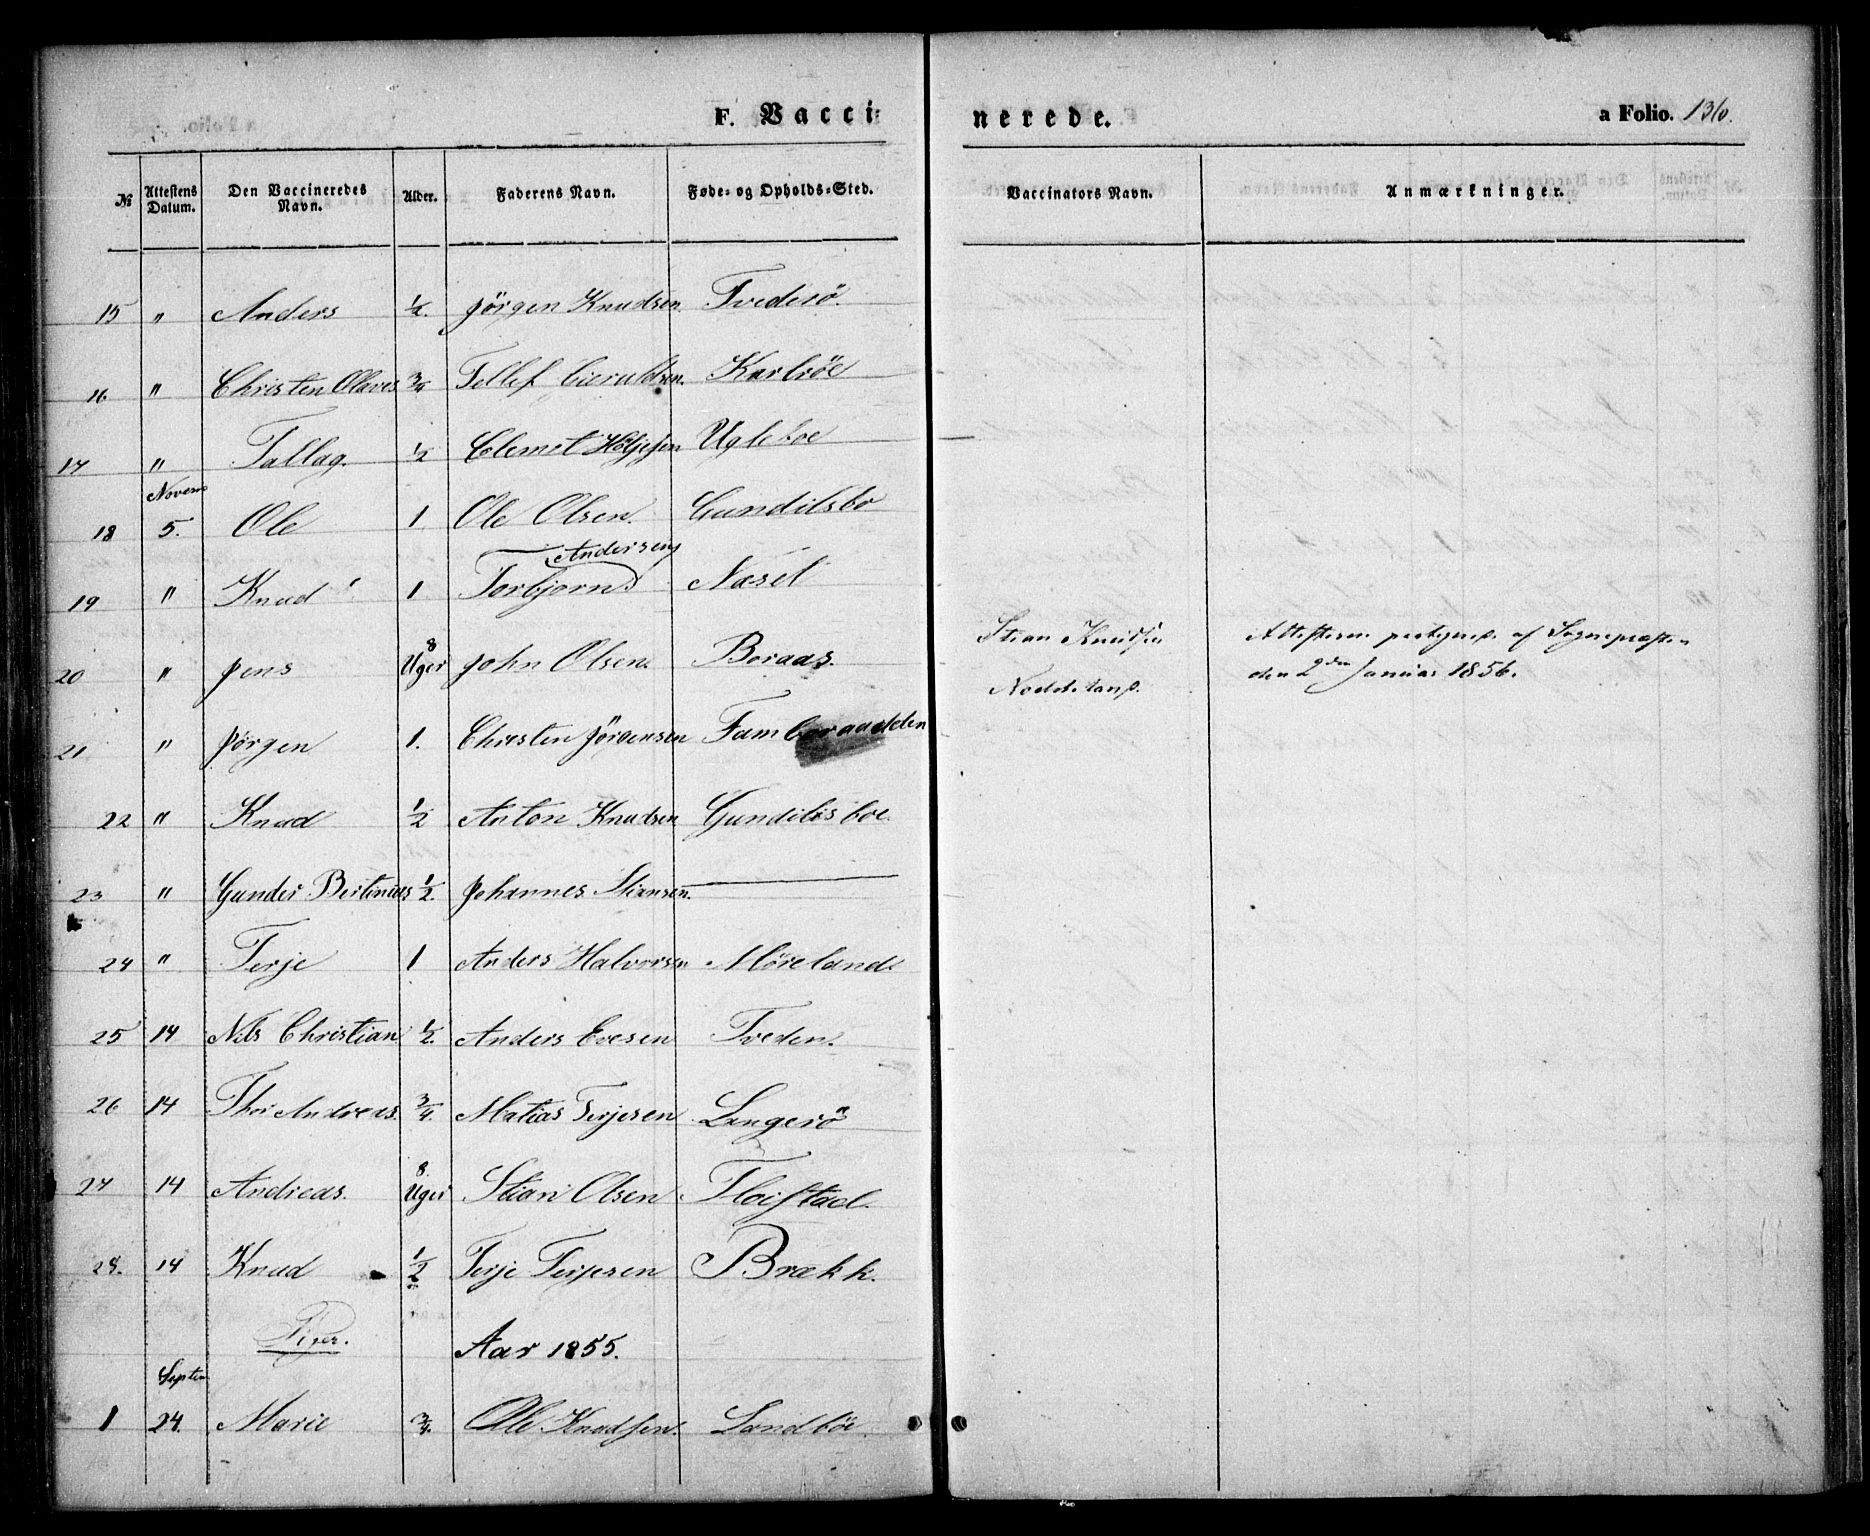 F. Vacci-
nerede.
a Folio. 136.
№ Attestens Datum. Den Vaccineredes Navn. Alder. Faderens Navn. Føde- og Opholds-Sted. Vaccinators Navn. Anmærkninger.
15 " Anders 1/2. Jörgen Knudsen Tvederö.
16 " Christen Olaves 3/4 Tellef Karlsöe
17 " Tallag. 1/2 Clemet Höljesen Ugleboe
Novem
18 5. Ole 1 Ole Olsen. Gundilsbo
Andersen
19 " Knud 1 Torbjorn Næset
20 " Jens 8 Uger John Olsen. Boraas. Stian Knudsen
den 2den Januar 1856.
21 " Jörgen 1. Christen Jörgensen
22 " Knud 1/2 Anton Knudsen Gundilsboe
23 " Gunder Bertinius 1/2. Johannes Stiansen.
24 " Terje 1 Anders Halvorsen Möreland.
25 14 Nils Christian 1/2. Anders Evesen Tveden.
26 14 Thor Andreas. 3/4. Matias Terjesen Lengerö
27 14 Andreas. 8 Uger Stian Olsen Floistad.
28. 14 Knud 1/2 Terje Terjesen Brækk.
Piger. Aar 1855.
Septem
1 24. Marie 3/4. Ole Knudsen. Sandböe.